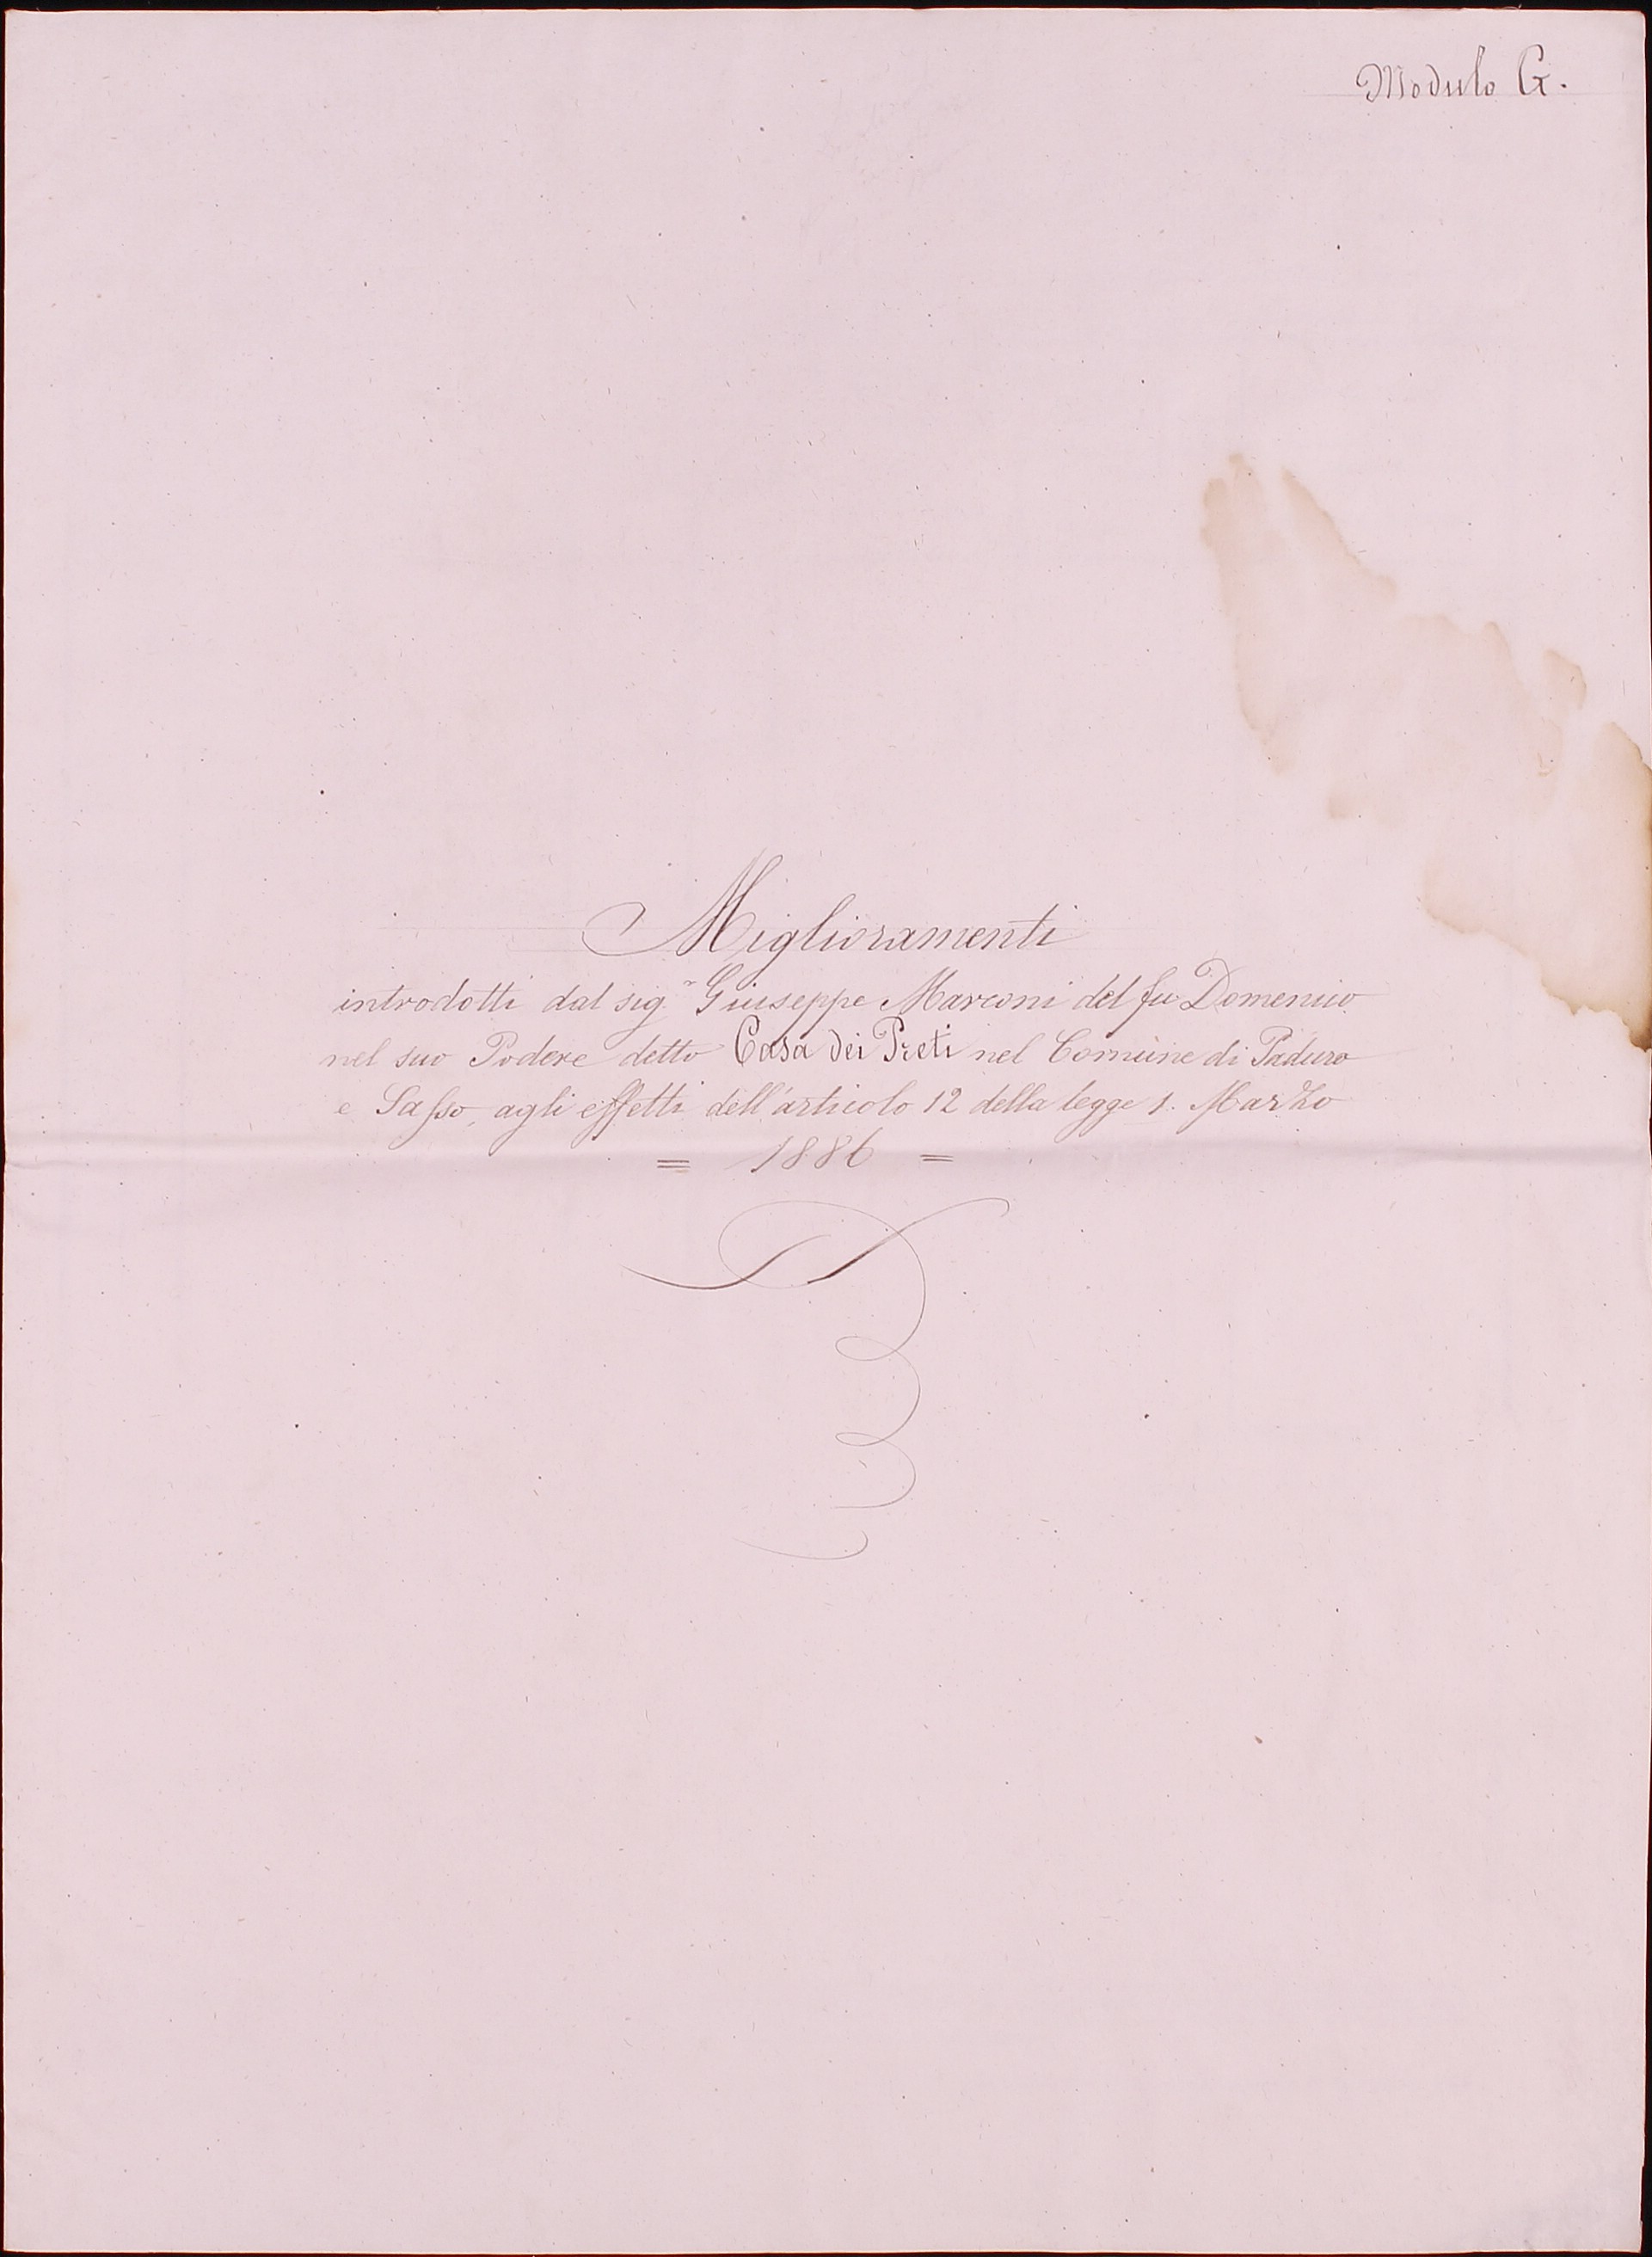 Modulo G.
Miglioramenti
introdotti dal sig.r Giuseppe Marconi del fu Domenico
nel suo Podere detto Casa dei Preti nel Comune di Paduro
e Sasso, agli effetti dell'articolo 12 della legge 1. Marzo
= 1886 =